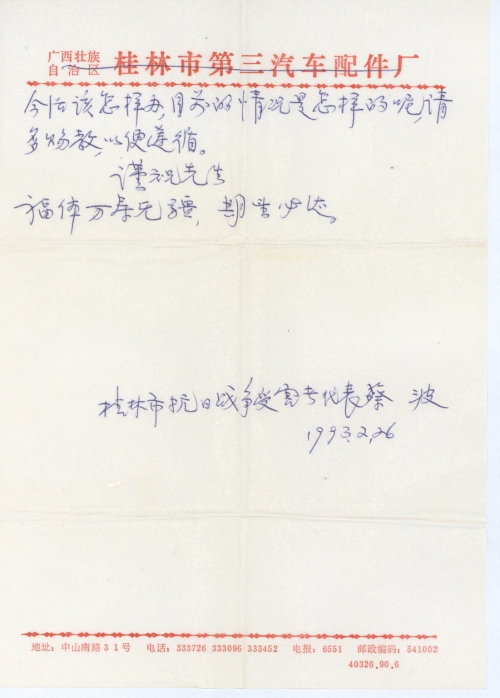 广西壮族
自治区 桂林市第三汽车配件厂
今后该怎样办,目前的情况是怎样的呢,请
多赐教,以便遵循。
谨祝先生
福体万寿无疆,期望必达。
桂林市抗日战争受害者代表蔡 波
1993.2.26
地址:中山南路31号 电话:333726 333096 333452 电报:6551 邮政编码:541002
40326.90.6